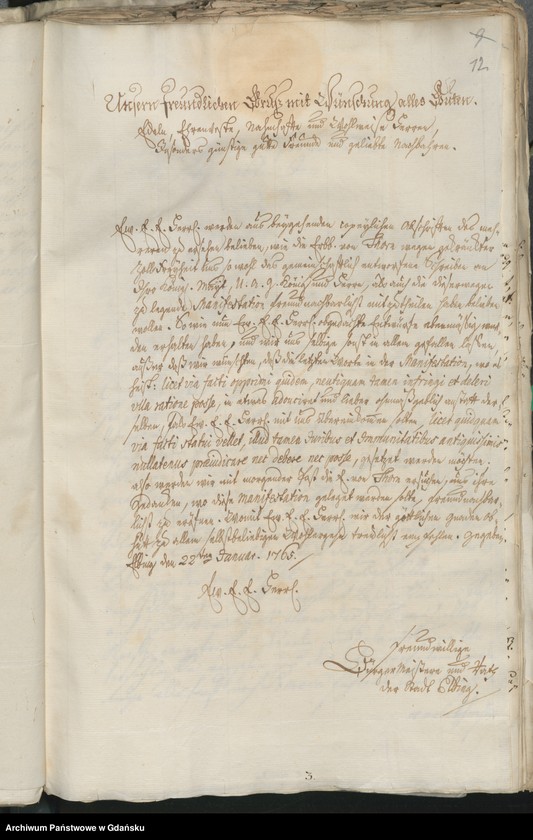 9
12.
Unsern freundlichen Grus mit Wünschung alles Guten.
Edele, Ehrenveste, Nahmhafte und Wohlweise Herren,
Besonders günstige gute Freunde und geliebte Nachbahren.
Ew. E. E. Herrl. werden aus beygehenden copeylichen Abschriften des
zu ersehen belieben, wie die von Thorn wegen gekränkter
Zollfreyheit uns so wohl das gemeinschaftlich entworfene Schreiben an
Ihro Königl. Mayt. U. A. G. König und Herrn, als auch die dieserwegen
zu legende Manifestation freundnachbarlich mitzutheilen haben belieben
wollen. So wie nun Ew. E. E. Herrl. Entwürfe
den erhalten haben, und wir uns selbige sonst in allen gefallen laßen,
außer daß wir wünschten, daß die letzten Worte in der Manifestation, wo es
heist: licet via facti opprimi quidem, neutiquam tamen infringi et deleri
ulla ratione posse, in etwas und lieber anstatt der
selben, falls Ew. E. E. Herrl. mit uns übereinkommen solten, licet quidquam
via facti statui vellet, illud tamen Juribus et Immunitatibus antiquissimis
nullatenus præiudicare nec debere nec posse, gesetzet werden möchten.
Also werden wir mit morgender Post die E. von Thorn ersuchen, uns ihre
Gedanken, wo diese Manifestation geleget werden solte, freundnachbar-
lich zu eröfnen. Womit Ew. E. E. Herrl. wir der göttlichen Gnaden Ob-
hut zu allem selbstbeliebigen Wohlergehen treulichst empfehlen. Gegeben
Elbing den 22ten Januar. 1765.
Ew. E. E. Herrl.
Freundwillige
BürgerMeistere und Rath
der Stadt Elbing.
3
Archiwum Państwowe w Gdańsku